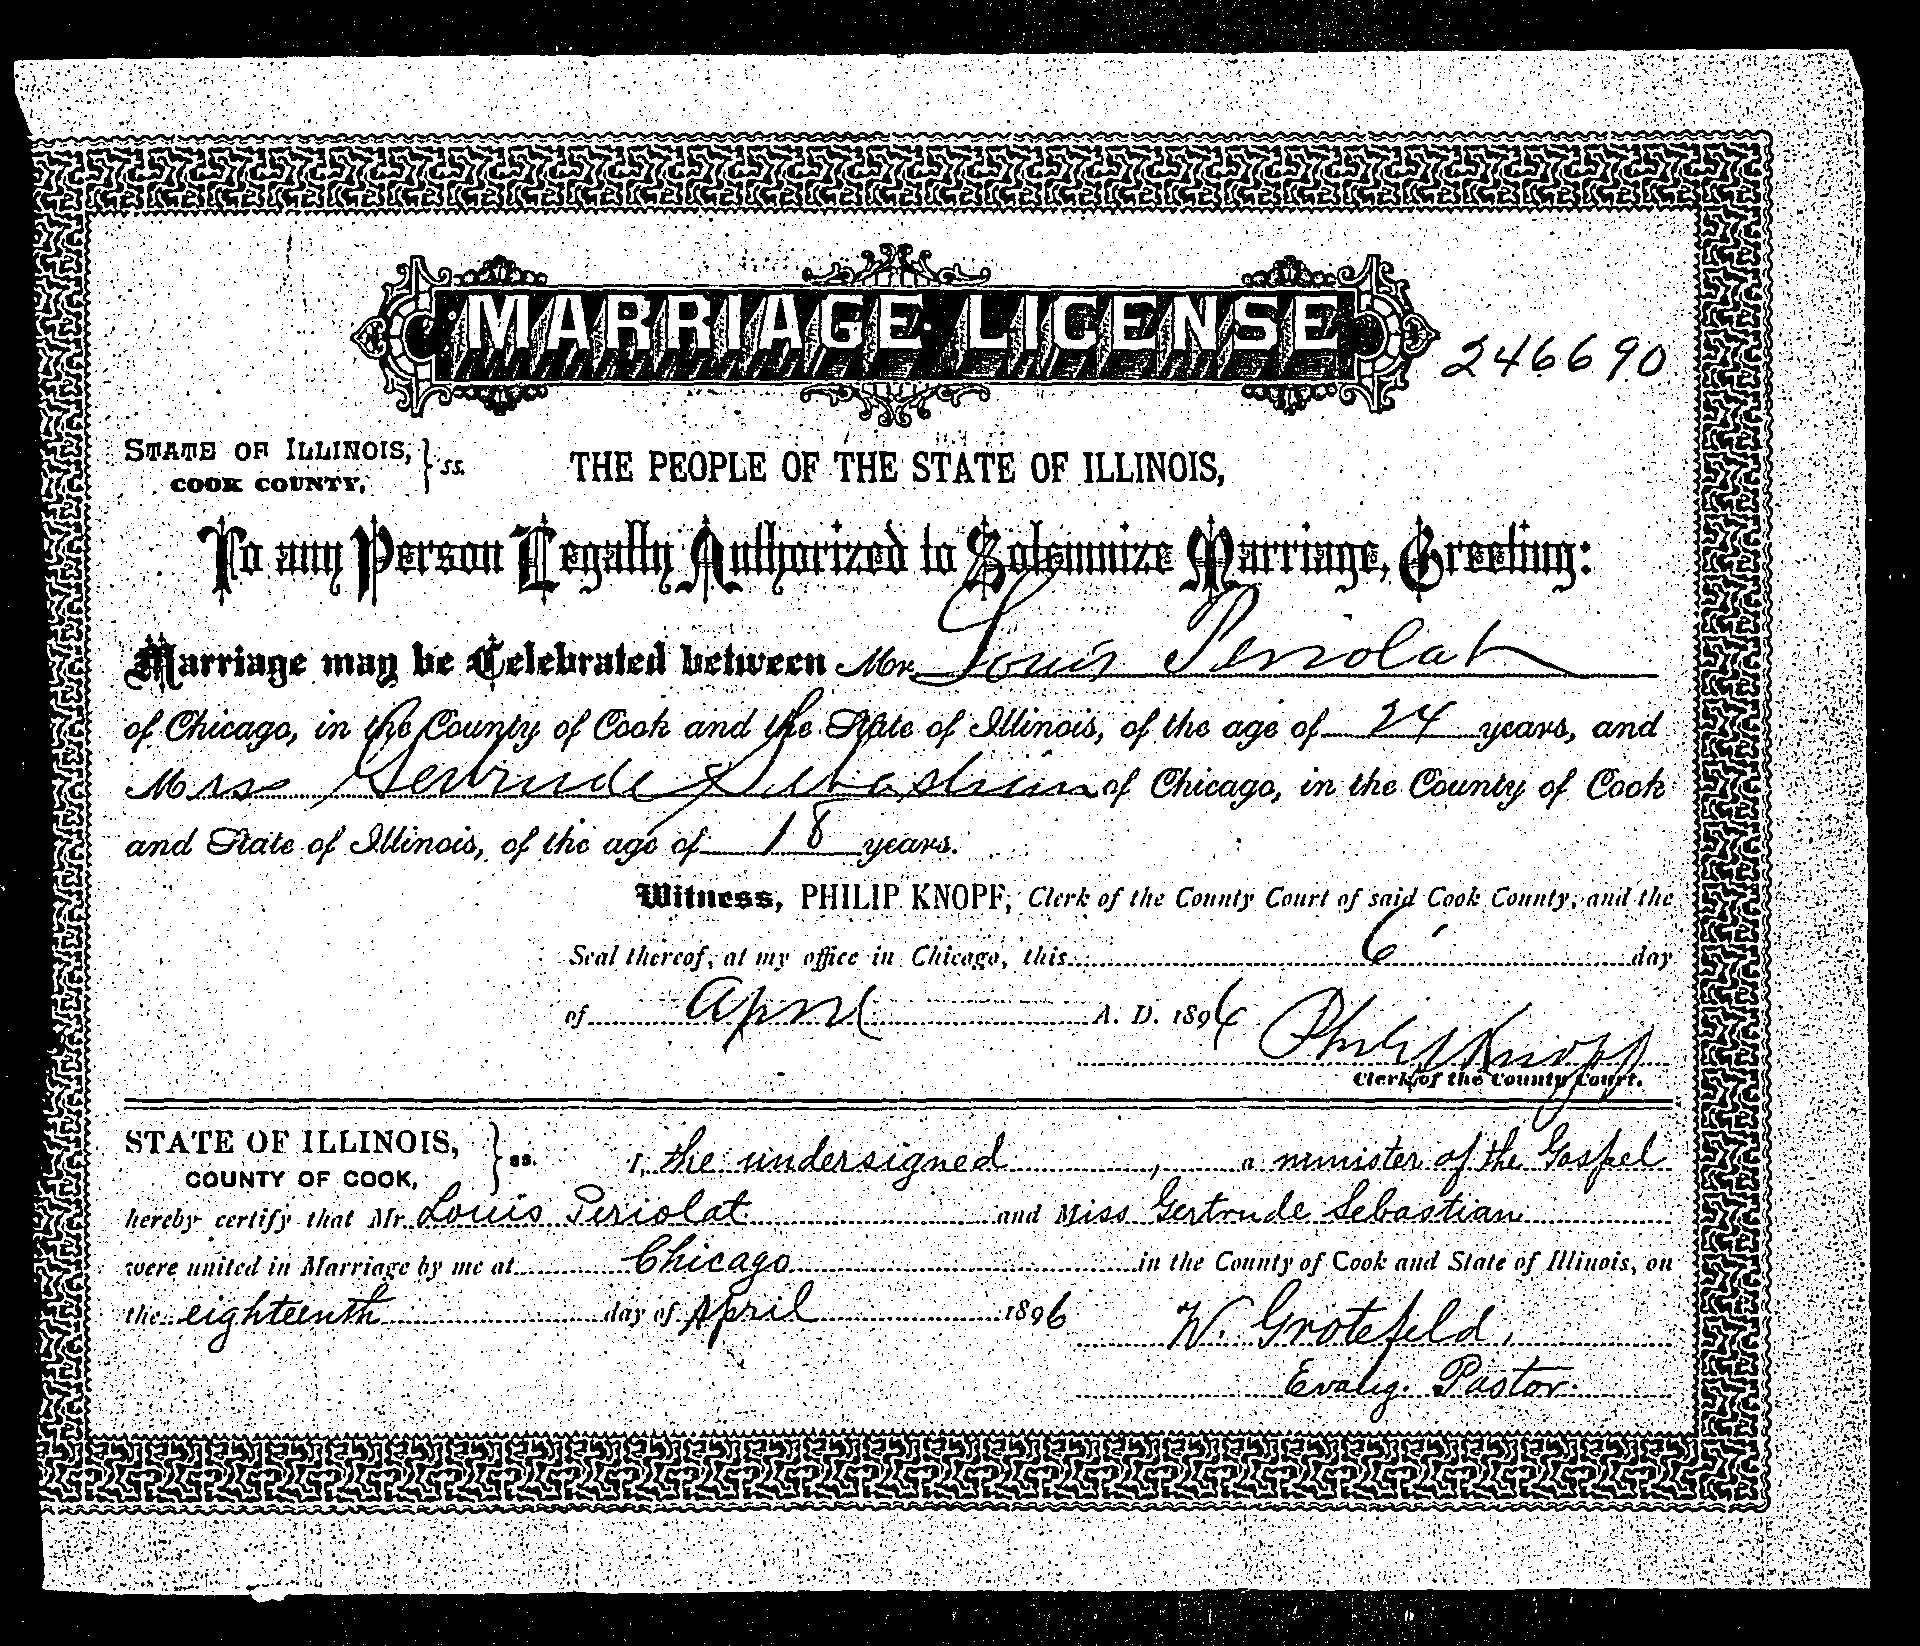 MARRIAGE LICENSE
246690
STATE OF ILLINOIS, } ss.
COOK COUNTY,
THE PEOPLE OF THE STATE OF ILLINOIS,
To any Person Legally Authorized to Solemnize Marriage, Greeting:
Marriage may be Celebrated between Mr. Louis Periolat
of Chicago, in the County of Cook and the State of Illinois, of the age of 24 years, and
Miss Gertrude Sebastian of Chicago, in the County of Cook
and State of Illinois, of the age of 18 years.
Witness, PHILIP KNOPF, Clerk of the County Court of said Cook County, and the
Seal thereof, at my office in Chicago, this 6 day
of April A. D. 1896 Philip Knopf
Clerk of the County Court.
STATE OF ILLINOIS, } ss. I, the undersigned, a minister of the Gospel
COUNTY OF COOK,
hereby certify that Mr. Louis Periolat and Miss Gertrude Sebastian
were united in Marriage by me at Chicago in the County of Cook and State of Illinois, on
the eighteenth day of April 1896 W. Grotefeld,
Evang. Pastor.